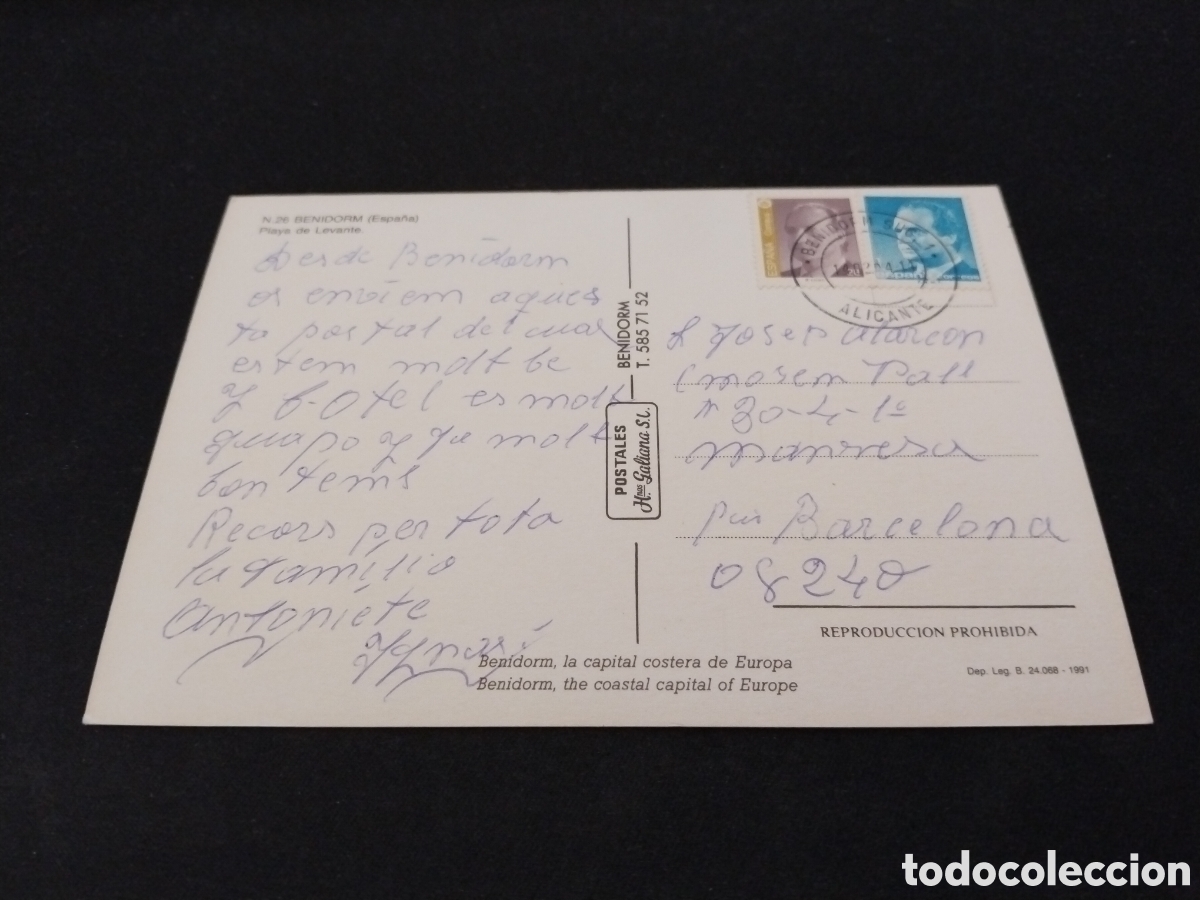 N.26 BENIDORM (España)
Playa de Levante.
Desde Benidorm
os enviem aques
ta postal del cual
estem molt be
y l'Otel es molt
guapo y fa molt
bon tems
Recors per tota
la familia
Antoniete
Ygnasi
BENIDORM
T. 585 71 52
POSTALES
H.nas Galiana S.L.
ESPAÑA
BENIDORM SUC. 1
ALICANTE
Josep Alarcon
mosem Pall
n 30-4-1º
Manresa
Barcelona
08240
REPRODUCCION PROHIBIDA
Benidorm, la capital costera de Europa
Benidorm, the coastal capital of Europe
Dep. Leg. B. 24.068 - 1991
todocoleccion